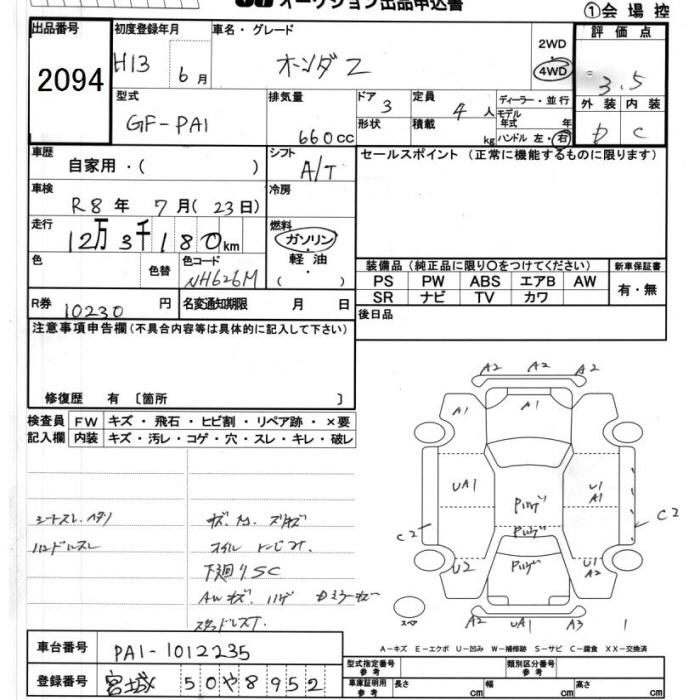 オークション出品申込書
①会場控
出品番号
2094
初度登録年月
H13 6月
車名・グレード
ホンダZ
2WD
4WD
評価点
3.5
外装 内装
D C
型式
GF-PA1
排気量
660cc
ドア
3
形状
定員
4人
積載
kg
ディーラー・並行
モデル年式 年
ハンドル 左・右
車歴
自家用・( )
シフト
A/T
セールスポイント(正常に機能するものに限ります)
車検
R8年 7月(23日)
冷房
走行
12万3千180km
燃料
ガソリン
軽油
( ・ )
色
色替
色コード
NH626M
装備品(純正品に限り○をつけてください)
新車保証書
PS PW ABS エアB AW
有・無
SR ナビ TV カワ
R券 10230円
名変通知期限 月 日
後日品
注意事項申告欄(不具合内容等は具体的に記入して下さい)
修復歴 有〔箇所 〕
検査員記入欄
FW キズ・飛石・ヒビ割・リペア跡・×要
内装 キズ・汚レ・コゲ・穴・スレ・キレ・破レ
シートスレ、ヘタリ
ハンドルスレ
下廻りSC
スタッドレスT.
A2 A2 A2
A1 A1
UA1 U1 A1
C2 C2
U2 U1 A2
A2 UA1 A3 1
スペア
A-キズ E-エクボ U-凹み W-補修跡 S-サビ C-腐食 XX-交換済
車台番号 PA1-1012235
登録番号 宮城 50や8952
型式指定番号 参考
類別区分番号 参考
車庫証明用 参考
長さ cm 幅 cm 高さ cm